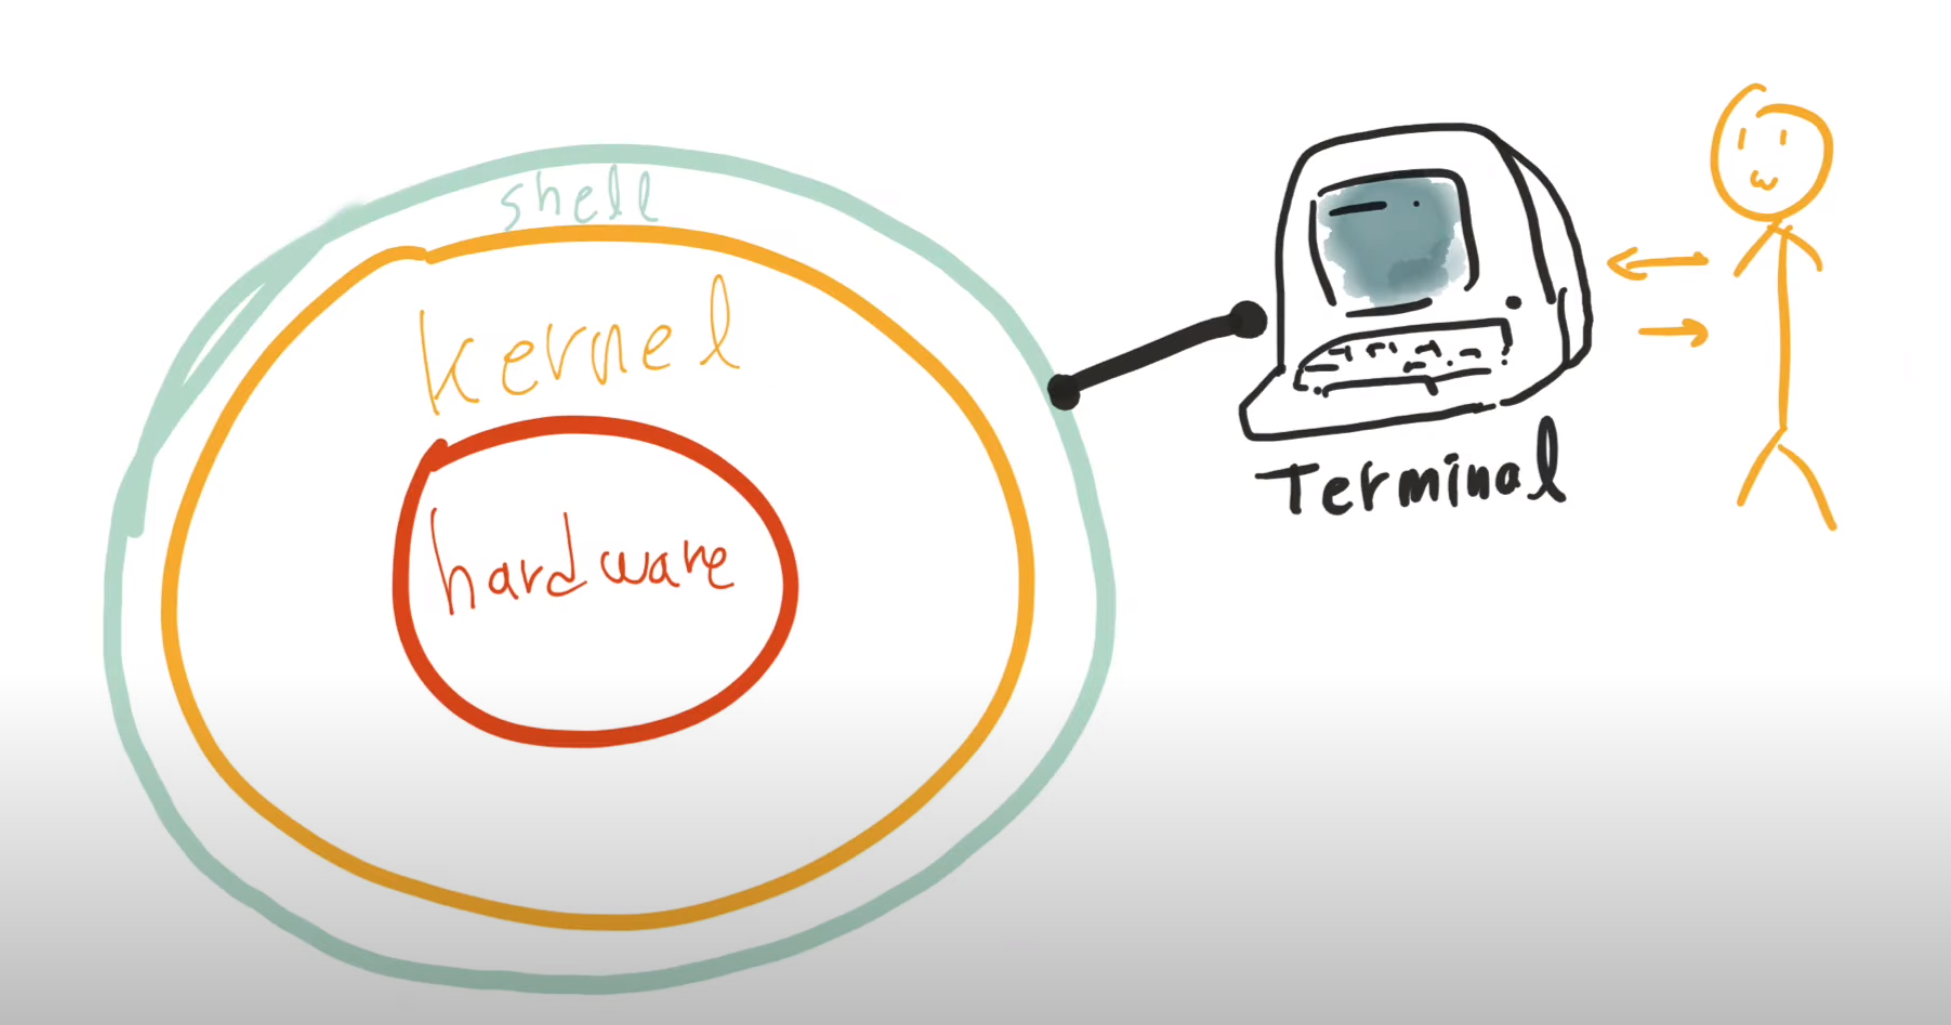 shell
kernel
hardware
Terminal